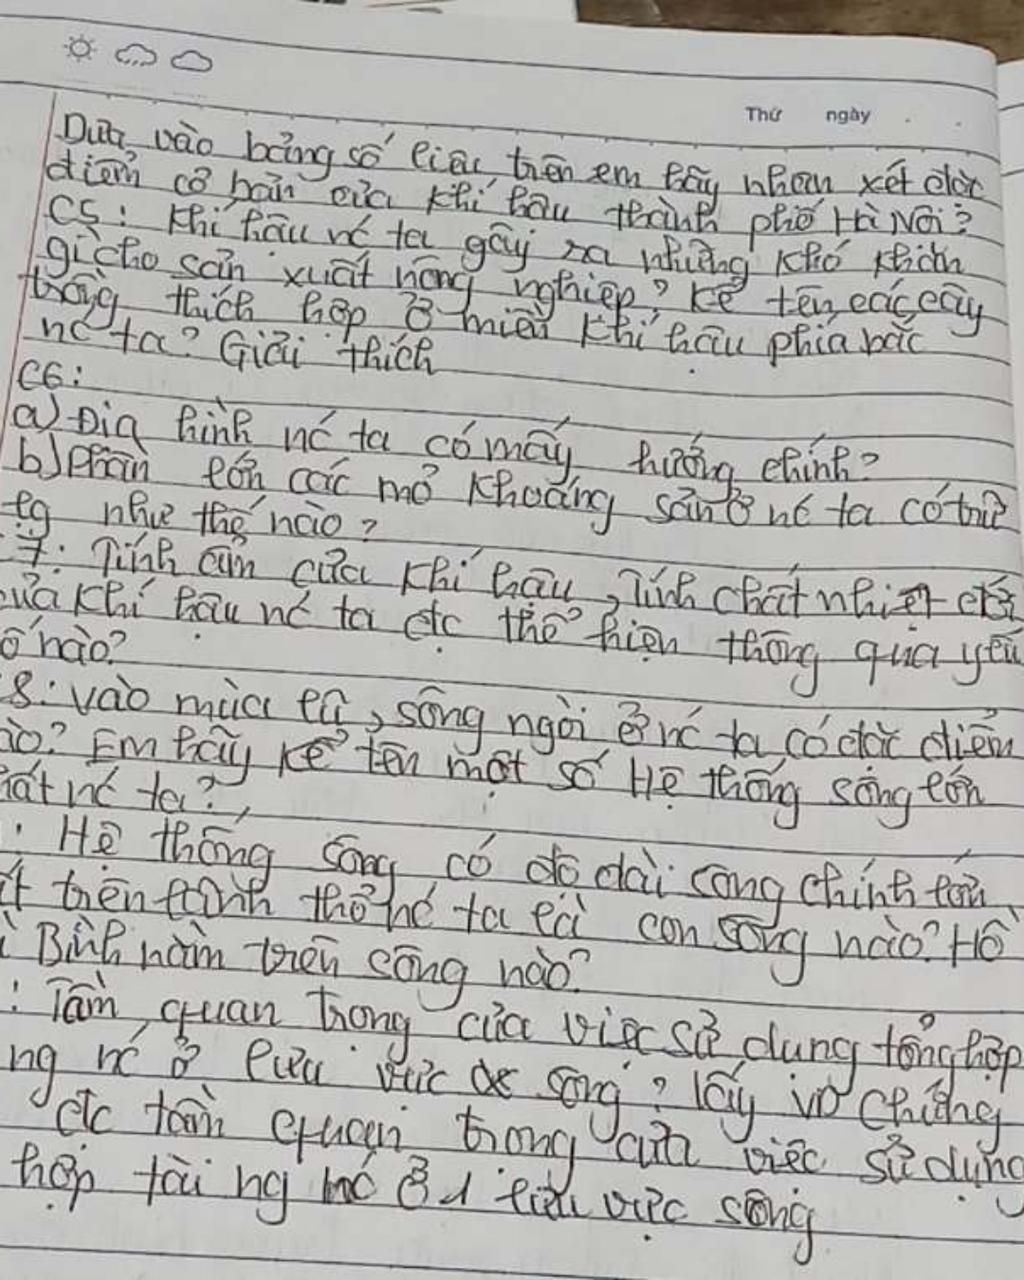 Thứ ngày
Dựa vào bảng số liệu trên em hãy nhận xét đặc
điểm cơ bản của khí hậu thành phố Hà Nội?
C5: Khí hậu nc ta gây ra những khó khăn
gì cho sản xuất nông nghiệp? kể tên các cây
trồng thích hợp ở miền khí hậu phía bắc
nc ta? Giải thích
C6:
a) Địa hình nc ta có mấy hướng chính?
b) Phần lớn các mỏ khoáng sản ở nc ta có trữ
lg như thế nào?
7: Tính ẩm của khí hậu, Tính chất nhiệt đới
của khí hậu nc ta đc thể hiện thông qua yếu
tố nào?
8: vào mùa lũ, sông ngòi ở nc ta có đặc điểm
nào? Em hãy kể tên một số Hệ thống sông lớn
nhất nc ta?
: Hệ thống sông có độ dài sông chính lớn
trên lãnh thổ nc ta là con sông nào? Hồ
Bình nằm trên sông nào?
: Tầm quan trọng của việc sử dụng tổng hợp
ng nc ở lưu vực sông? lấy vd chứng
đc tầm quan trọng của việc sử dụng
hợp tài ng nc ở 1 lưu vực sông